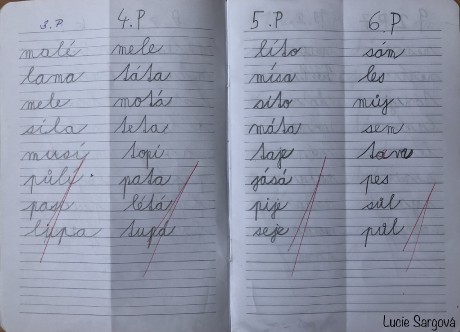 3. P
malé
lama
mele
síla
musí
půlí
pase
lupa
4. P
mele
táta
motá
teta
topí
pata
létá
tupá
5. P
líto
mísa
síto
máta
taje
jásá
pije
seje
6. P
sám
les
můj
sem
tava
pes
sůl
půl
Lucie Sargová